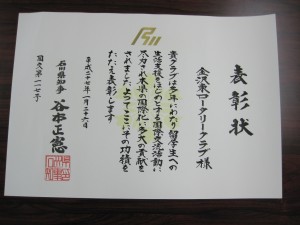 表彰状
金沢東ロータリークラブ様
貴クラブは多年にわたり留学生への
生活支援をはじめとする国際交流活動に
尽力され本県の国際化に多大の貢献を
されました よってここにその功績を
たたえ表彰します
平成二十七年一月二十六日
石川県知事 谷本正憲
国交第一一七号